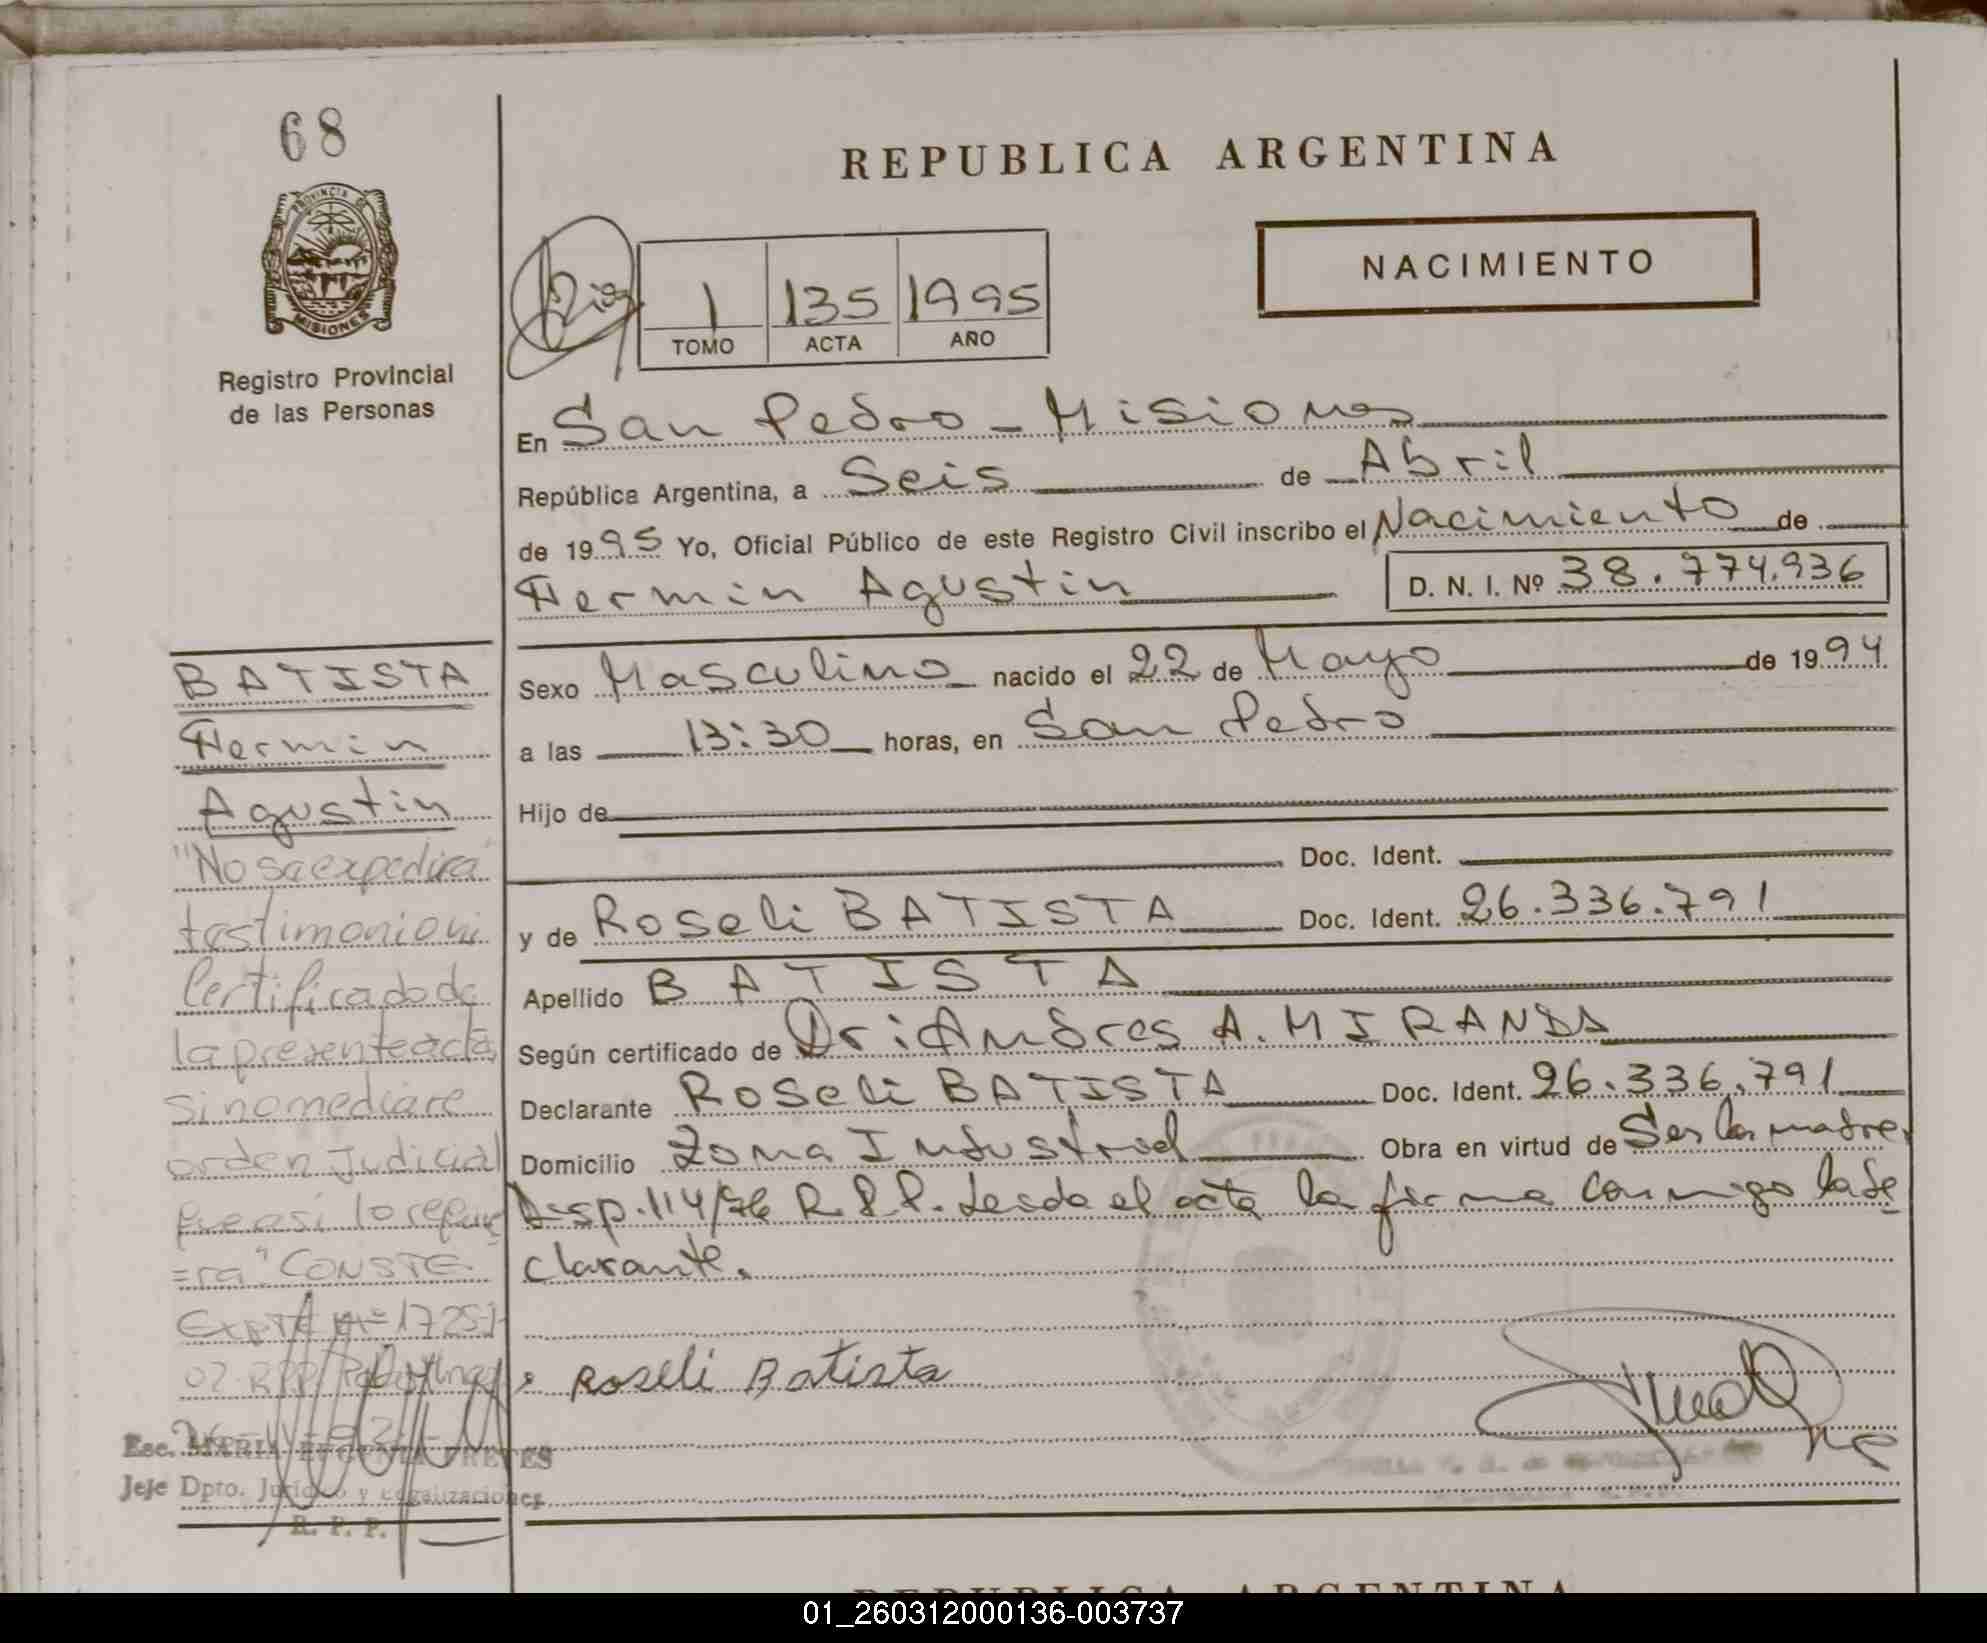 68
PROVINCIA DE
MISIONES
Registro Provincial
de las Personas
REPUBLICA ARGENTINA
NACIMIENTO
1 135 1995
TOMO ACTA AÑO
En San Pedro - Misiones
República Argentina, a Seis de Abril
de 1995 Yo, Oficial Público de este Registro Civil inscribo el Nacimiento de
Fermin Agustin D. N. I. Nº 38.774.936
Sexo Masculino nacido el 22 de Mayo de 1994
a las 13:30 horas, en San Pedro
Hijo de
Doc. Ident.
y de Roseli BATISTA Doc. Ident. 26.336.791
Apellido BATISTA
Según certificado de Dr: Andres A. MIRANDA
Declarante Roseli BATISTA Doc. Ident. 26.336.791
Domicilio Zona Industrial Obra en virtud de Ser la madre
Disp. 114/76 R.P.P. Leida el acta la firma conmigo la de
clarante.
Roseli Batista
BATISTA
Fermin
Agustin
"No se expedira
testimonio ni
Certificado de
la presente acta
si no mediare
orden Judicial
que asi lo requie
=ra" CONSTE
Expte Nº 1725-J-
02 RPP
Esc. MARIA EUGENIA PREYES
Jefe Dpto. Jurídico y Legalizaciones
R. P. P.
REPUBLICA ARGENTINA
01_260312000136-003737